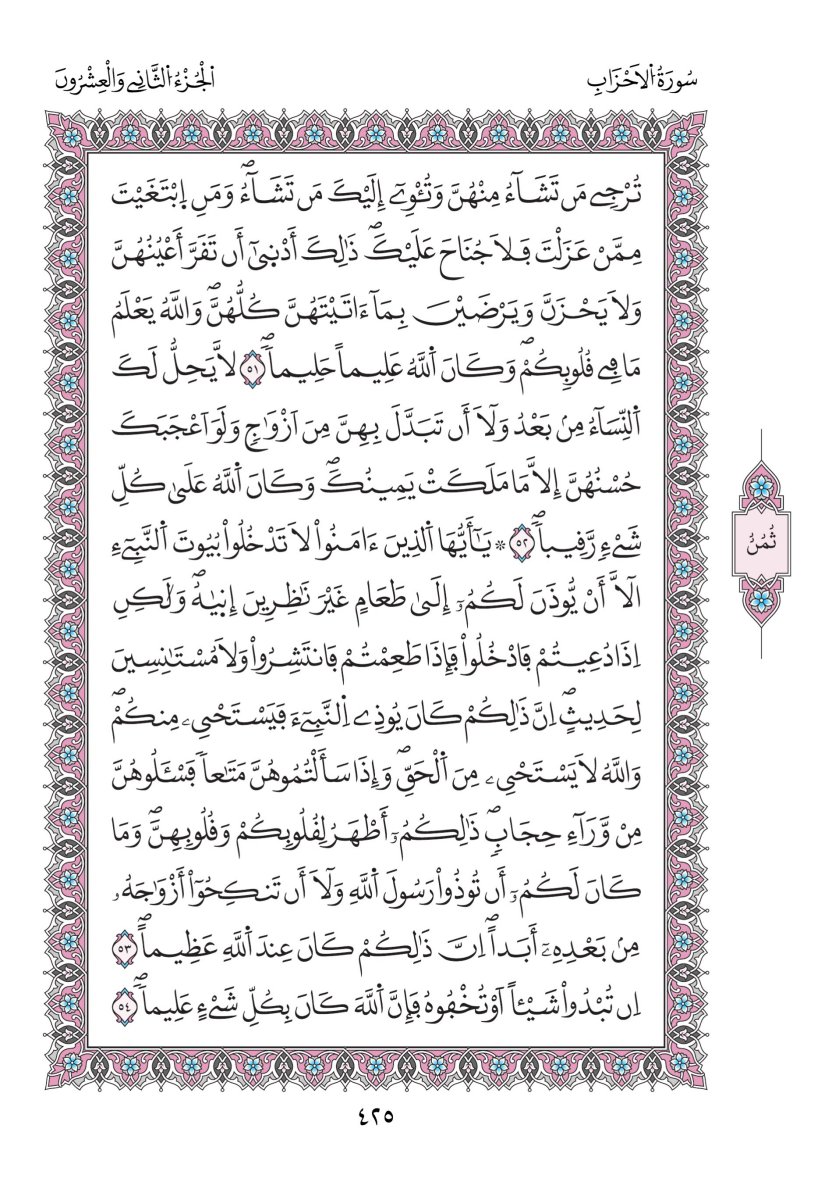 سُورَةُ الْأَحْزَابِ
اَلْجُزْءُ الثَّانِي وَالْعِشْرُونَ
تُرْجِے مَن تَشَآءُ مِنْهُنَّ وَتُـْٔوِےٓ إِلَيْكَ مَن تَشَآءُۖ وَمَنِ اِبْتَغَيْتَ
مِمَّنْ عَزَلْتَ فَلَا جُنَاحَ عَلَيْكَۖ ذَٰلِكَ أَدْنۭيٰٓ أَن تَقَرَّ أَعْيُنُهُنَّ
وَلَا يَحْزَنَّ وَيَرْضَيْنَ بِمَآ ءَاتَيْتَهُنَّ كُلُّهُنَّۖ وَاللَّهُ يَعْلَمُ
مَا فِے قُلُوبِكُمْۖ وَكَانَ اَللَّهُ عَلِيماً حَلِيماٗۖ ٥١ لَّا يَحِلُّ لَكَ
اَلنِّسَآءُ مِنۢ بَعْدُ وَلَآ أَن تَبَدَّلَ بِهِنَّ مِنَ اَزْوَٰجٖ وَلَوَ اَعْجَبَكَ
حُسْنُهُنَّ إِلَّا مَا مَلَكَتْ يَمِينُكَۖ وَكَانَ اَللَّهُ عَلَىٰ كُلِّ
شَےْءٖ رَّقِيباٗۖ ٥٢ ۞ يَٰٓأَيُّهَا اَلذِينَ ءَامَنُواْ لَا تَدْخُلُواْ بُيُوتَ اَلنَّبِےٓءِ
الَّآ أَنْ يُّوذَنَ لَكُمُۥٓ إِلَىٰ طَعَامٍ غَيْرَ نَٰظِرِينَ إِنۭيٰهُۖ وَلَٰكِنِ
اِذَا دُعِيتُمْ فَادْخُلُواْ فَإِذَا طَعِمْتُمْ فَانتَشِرُواْ وَلَا مُسْتَٰنِسِينَ
لِحَدِيثٍۖ اِنَّ ذَٰلِكُمْ كَانَ يُوذِے اِلنَّبِےٓءَ فَيَسْتَحْيِۦ مِنكُمْۖ
وَاللَّهُ لَا يَسْتَحْيِۦ مِنَ اَلْحَقِّۖ وَإِذَا سَأَلْتُمُوهُنَّ مَتَٰعاٗ فَسْـَٔلُوهُنَّ
مِنْ وَّرَآءِ حِجَابٖۖ ذَٰلِكُمُۥٓ أَطْهَرُ لِقُلُوبِكُمْ وَقُلُوبِهِنَّۖ وَمَا
كَانَ لَكُمُۥٓ أَن تُوذُواْ رَسُولَ اَللَّهِ وَلَآ أَن تَنكِحُوٓاْ أَزْوَٰجَهُۥ
مِنۢ بَعْدِهِۦٓ أَبَداًۖ اِنَّ ذَٰلِكُمْ كَانَ عِندَ اَللَّهِ عَظِيماًۖ ٥٣
اِن تُبْدُواْ شَيْـٔاً اَوْ تُخْفُوهُ فَإِنَّ اَللَّهَ كَانَ بِكُلِّ شَےْءٍ عَلِيماٗۖ ٥٤
ثُمُنُ
٤٢٥